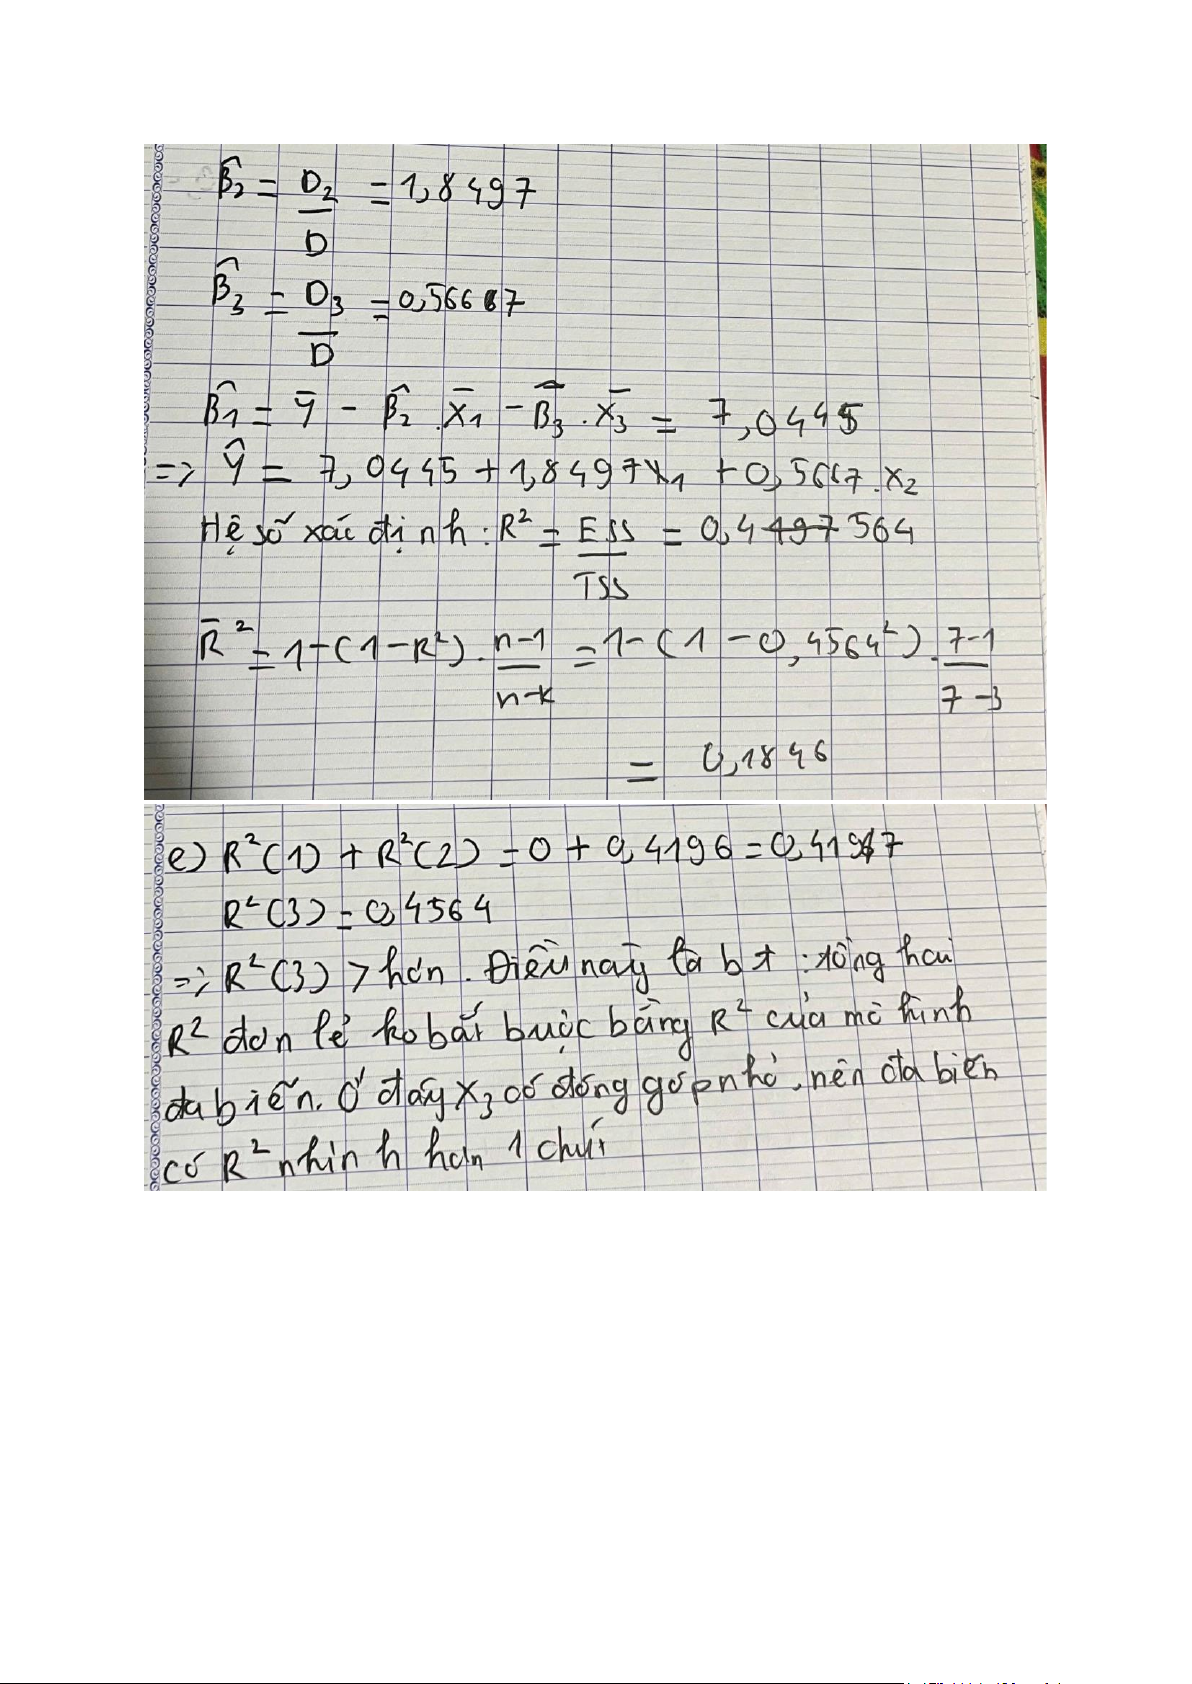 β̂₂ = D₂/D = 1,8497
β̂₃ = D₃/D = 0,56667
β̂₁ = Ȳ - β̂₂.X̄₁ - β̂₃.X̄₃ = 7,0445
=> Ŷ = 7,0445 + 1,8497X₁ + 0,5667.X₂
Hệ số xác định: R² = ESS/TSS = 0,4564
R̄² = 1-(1-R²).(n-1)/(n-k) = 1-(1-0,4564²).(7-1)/(7-3)
= 0,1846
e) R²(1) + R²(2) = 0 + 0,4196 = 0,4197
R²(3) = 0,4564
=> R²(3) > hơn. Điều này ta bt: tổng hai
R² đơn lẻ ko bắt buộc bằng R² của mô hình
đa biến. Ở đây X₃ có đóng góp nhỏ, nên đa biến
có R² nhỉnh hơn 1 chút